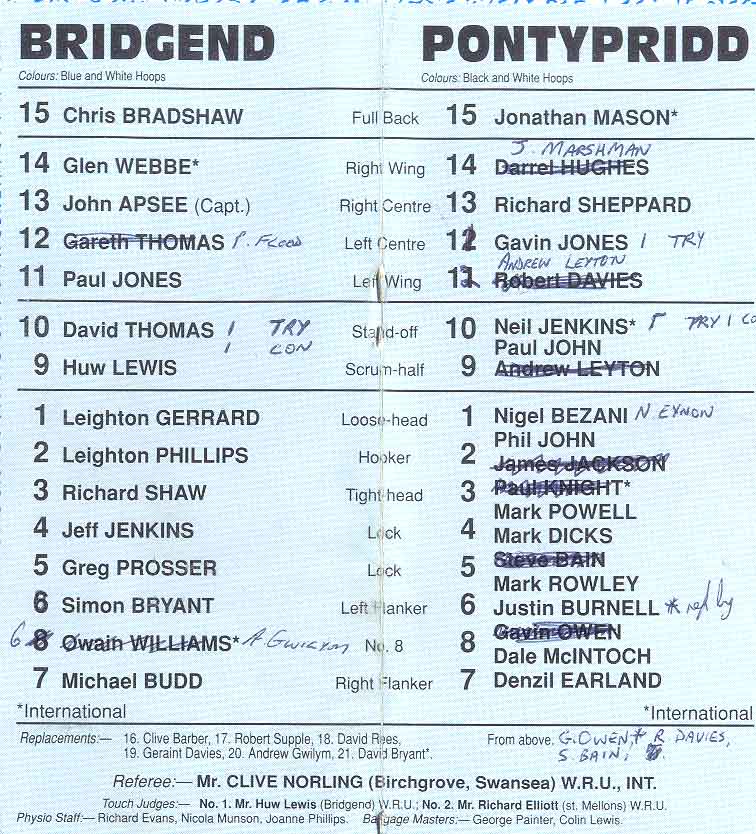 BRIDGEND PONTYPRIDD
Colours: Blue and White Hoops Colours: Black and White Hoops
15 Chris BRADSHAW Full Back 15 Jonathan MASON*
J. MARSHMAN
14 Glen WEBBE* Right Wing 14 Darrel HUGHES
13 John APSEE (Capt.) Right Centre 13 Richard SHEPPARD
12 Gareth THOMAS P. FLOOD Left Centre 12 Gavin JONES 1 TRY
ANDREW LEYTON
11 Paul JONES Left Wing 11 Robert DAVIES
10 David THOMAS 1 TRY Stand-off 10 Neil JENKINS* TRY 1 CO
1 CON Paul JOHN
9 Huw LEWIS Scrum-half 9 Andrew LEYTON
1 Leighton GERRARD Loose-head 1 Nigel BEZANI N EYNON
Phil JOHN
2 Leighton PHILLIPS Hooker 2 James JACKSON
3 Richard SHAW Tight-head 3 Paul KNIGHT*
Mark POWELL
4 Jeff JENKINS Lock 4 Mark DICKS
5 Greg PROSSER Lock 5 Steve BAIN
Mark ROWLEY
6 Simon BRYANT Left Flanker 6 Justin BURNELL * rep by
6 8 Owain WILLIAMS* A. GWILYM No. 8 8 Gavin OWEN
Dale McINTOCH
7 Michael BUDD Right Flanker 7 Denzil EARLAND
*International *International
Replacements:— 16. Clive Barber, 17. Robert Supple, 18. David Rees, From above. G. OWEN,* R DAVIES,
19. Geraint Davies, 20. Andrew Gwilym, 21. David Bryant*. S. BAIN,
Referee:— Mr. CLIVE NORLING (Birchgrove, Swansea) W.R.U., INT.
Touch Judges:— No. 1. Mr. Huw Lewis (Bridgend) W.R.U.; No. 2. Mr. Richard Elliott (st. Mellons) W.R.U.
Physio Staff:— Richard Evans, Nicola Munson, Joanne Phillips. Baggage Masters:— George Painter, Colin Lewis.